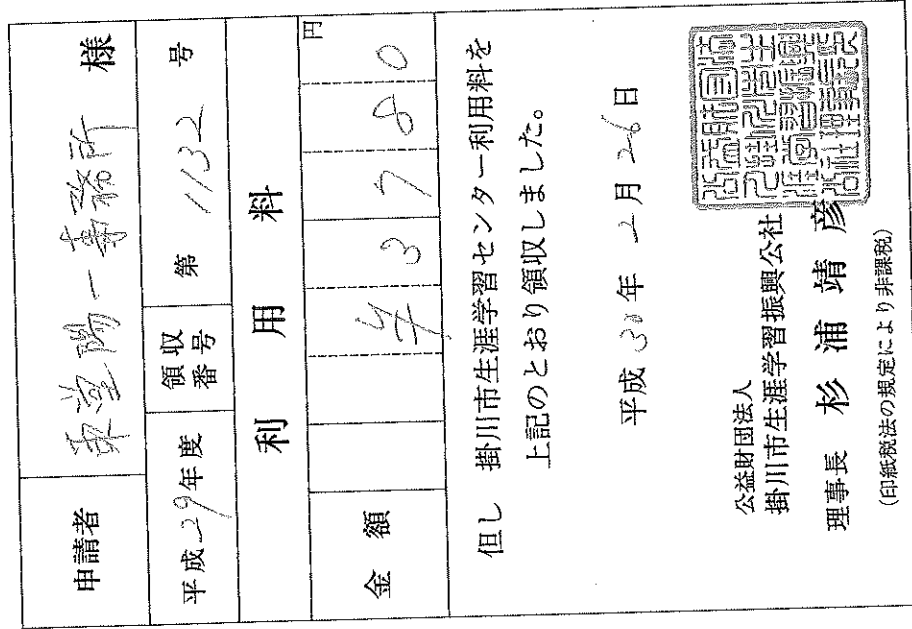 申請者 東堂陽一事務所 様
平成29年度 領収番号 第 1132 号
利用料
金額 ¥3780円
但し 掛川市生涯学習センター利用料を
上記のとおり領収しました。
平成30年2月26日
公益財団法人
掛川市生涯学習振興公社
理事長 杉浦靖彦
(印紙税法の規定により非課税)